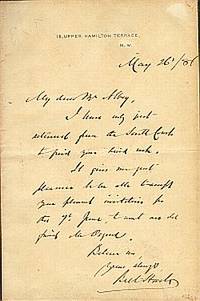 15, UPPER HAMILTON TERRACE,
N.W.
May 26th/86
My dear Mr
I have only just
returned from the South Coast
to find your kind note.
It gives me great
pleasure to be able to accept
your pleasant invitation for
the 7th June to meet our old
friend Mr
Believe me
Yours always
Bret Harte